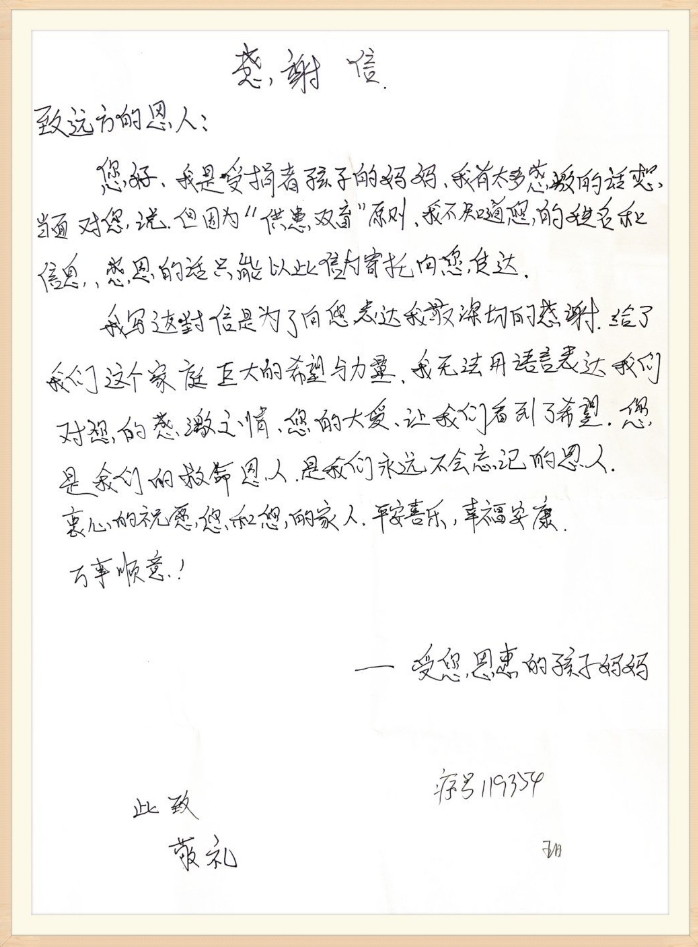 感谢信.
致远方的恩人:
您好、我是受捐者孩子的妈妈、我有太多感激的话想,
当面对您说.但因为“供患双盲”原则、我不知道您的姓名和
信息,感恩的话只能以此信为寄托向您传达.
我写这封信是为了向您表达我最深切的感谢.给了
我们这个家庭巨大的希望与力量、我无法用语言表达我们
对您的感激之情、您的大爱、让我们看到了希望.您
是我们的救命恩人.是我们永远不会忘记的恩人.
衷心的祝愿您和您的家人.平安喜乐,幸福安康.
万事顺意!
— 受您恩惠的孩子妈妈
序号119354
此致
敬礼